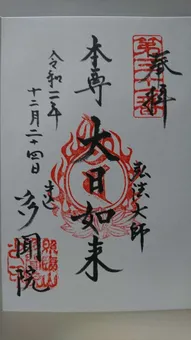 奉拝
弘法大師
本尊 大日如来
令和二年
十二月二十四日
多聞院